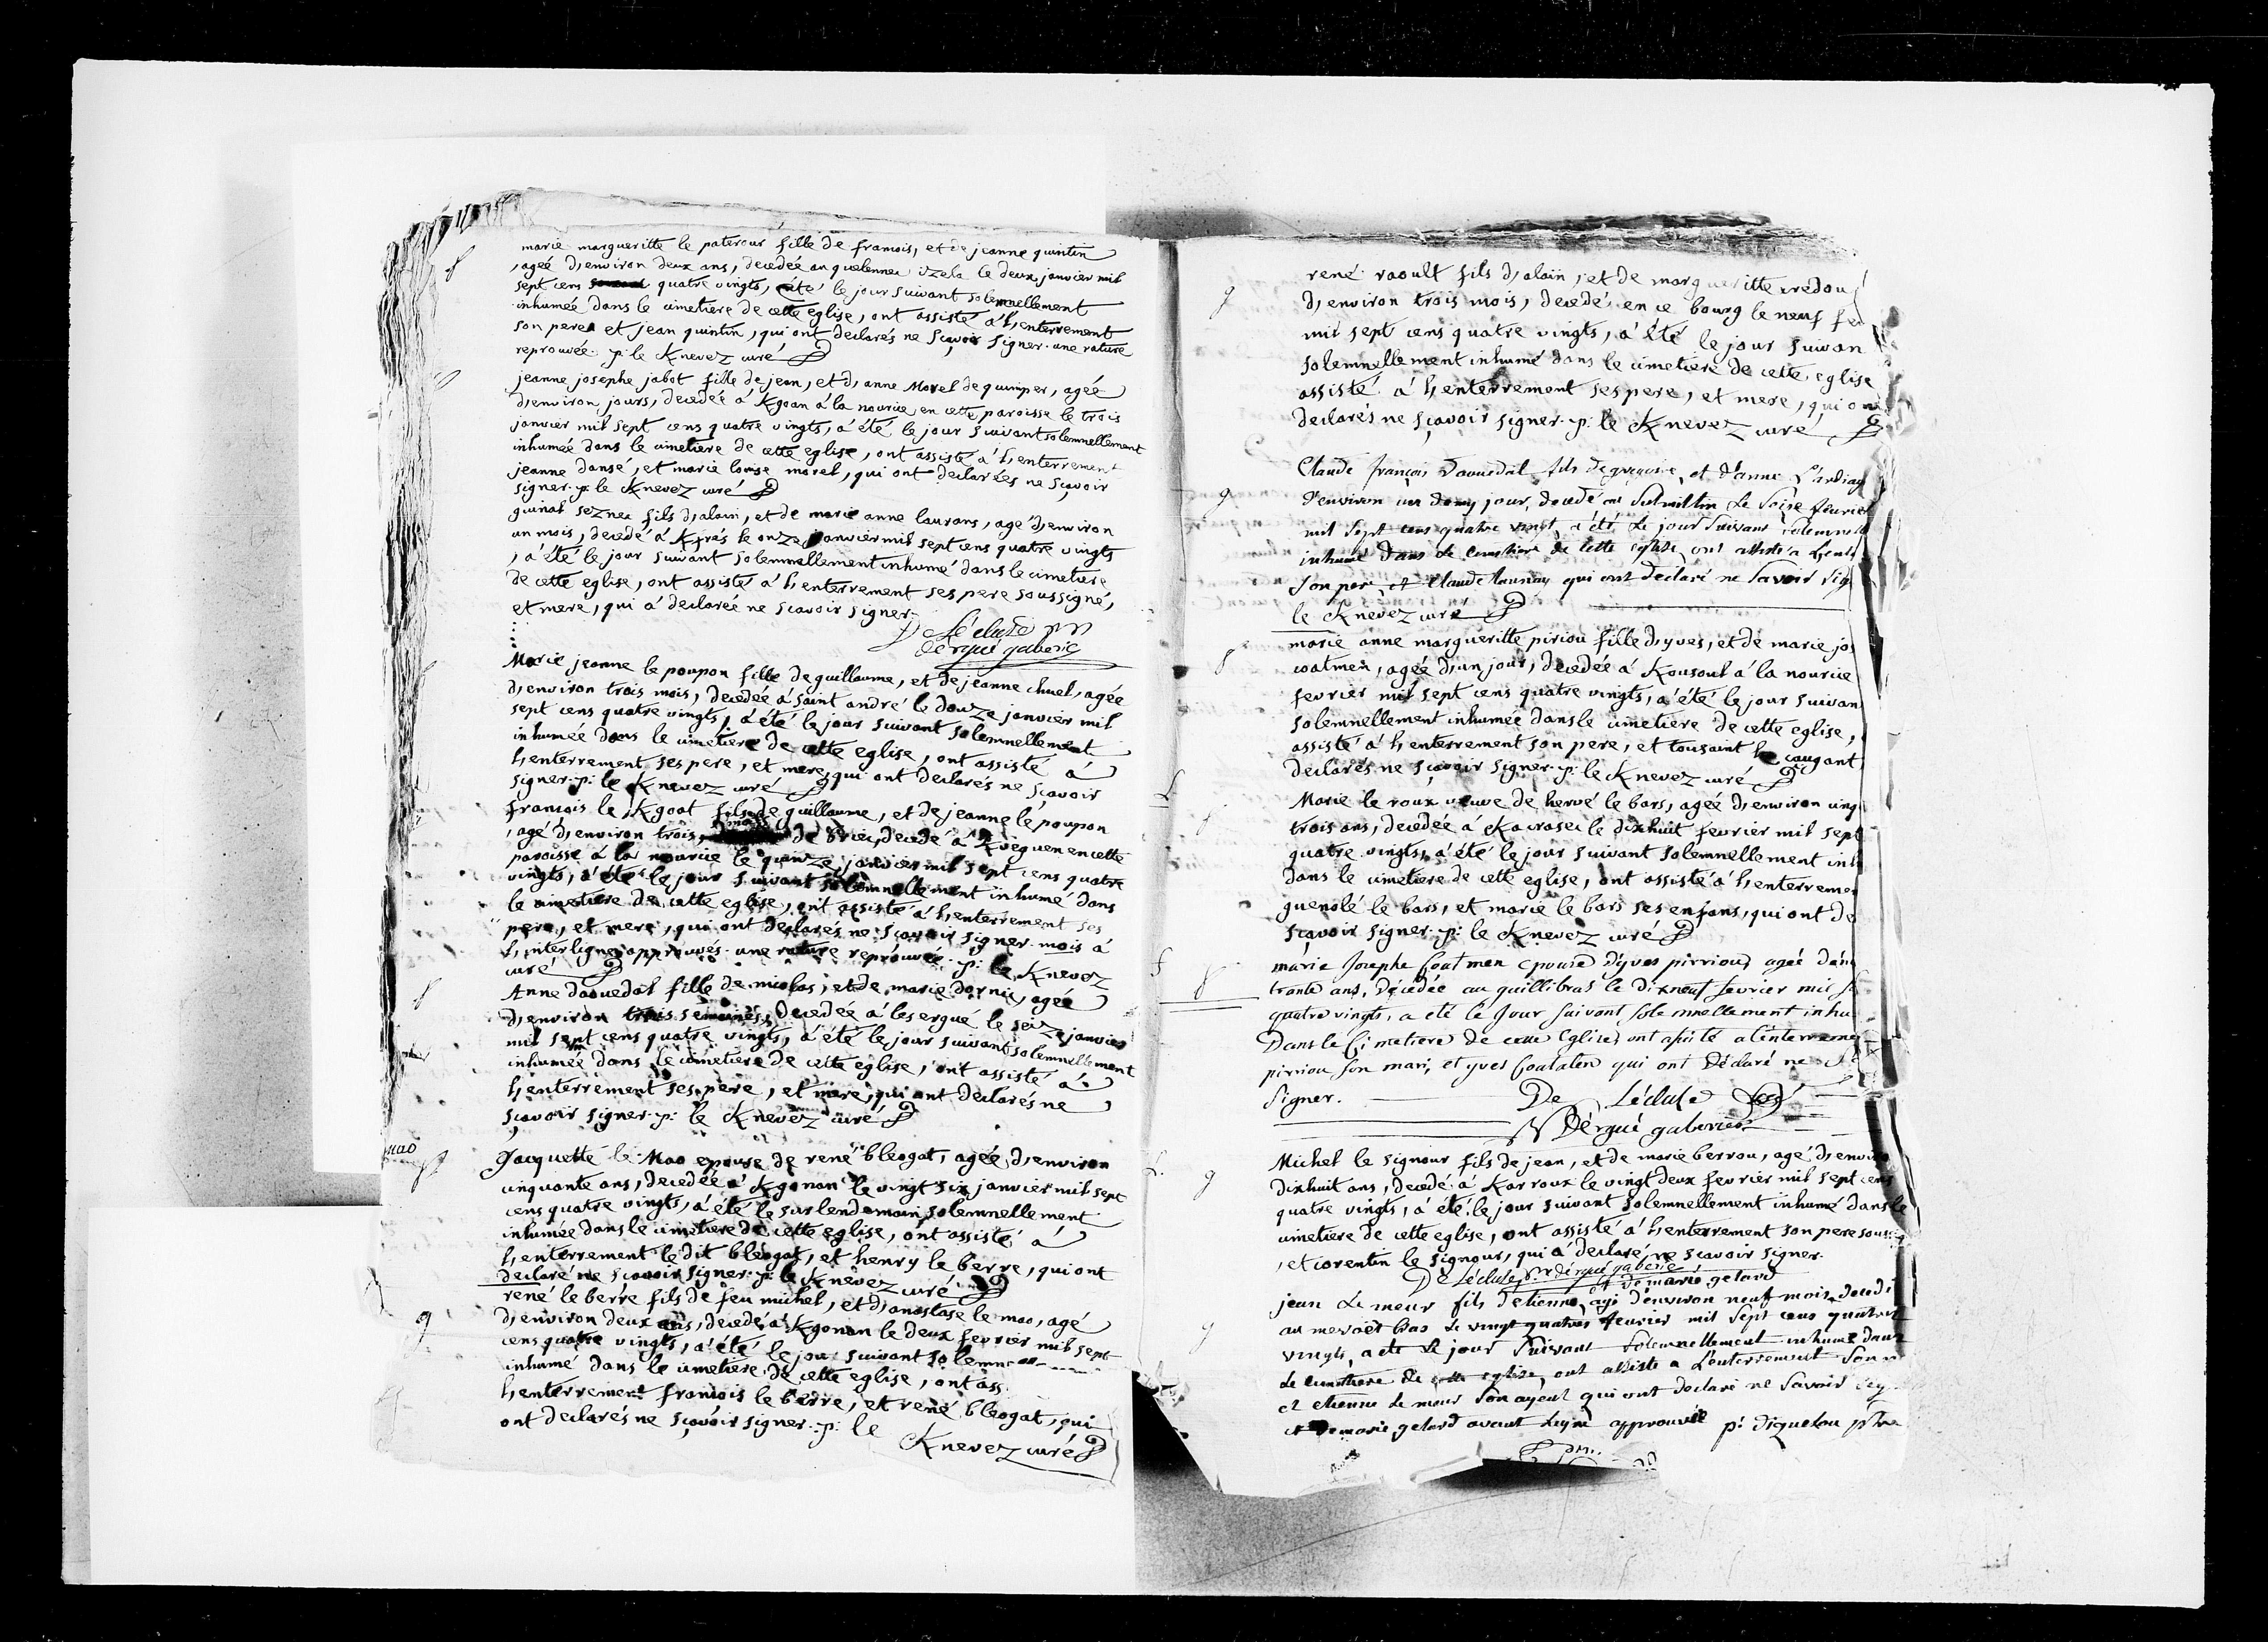 marie margueritte le paterour fille de francois, et de jeanne quintin
, agée d'environ deux ans, decedée au quelennec izela le deux janvier mil
sept cens quatre vingts, a été le jour suivant solemnellement
inhumée dans le cimetiere de cette eglise, ont assisté á l'enterrement
son pere et jean quintin, qui ont declarés ne sçavoir signer. une rature
reprouvée. p: le Knevez curé
jeanne josephe jabot fille de jean, et d'anne Morel de quimper, agée
d'environ jours, decedée á Kgoan á la nourice en cette paroisse le trois
janvier mil sept cens quatre vingts, á été le jour suivant solemnellement
inhumée dans le cimetiere de cette eglise, ont assisté á l'enterrement
jeanne dansé, et marie louise morel, qui ont declarées ne sçavoir
signer. p: le Knevez curé
guinal seznec fils d'alain, et de marie anne laurans, agé d'environ
un mois, decedé á Kfrés le onze janvier mil sept cens quatre vingts
, á été le jour suivant solemnellement inhumé dans le cimetiere
de cette eglise, ont assisté á l'enterrement ses pere soussigné,
et mere, qui á declarée ne scavoir signer.
De Lécluse
dergué gaberic
Marie jeanne le poupon fille de guillaume, et de jeanne chuel, agée
d'environ trois mois, decedée á saint andré le douze janvier mil
sept cens quatre vingts, á été le jour suivant solemnellement
inhumée dans le cimetiere de cette eglise, ont assisté á
l'enterrement ses pere, et mere, qui ont declarés ne scavoir
signer. p: le Knevez curé
francois le Kgoat fils de guillaume, et de jeanne le poupon
mois
, agé d'environ trois, de briec, decedé á Kveguen en cette
paroisse á la nourice le quinze janvier mil sept cens quatre
vingts, á été le jour suivant solemnellement inhumé dans
le cimetiere de cette eglise, ont assisté á l'enterrement ses
pere, et mere, qui ont declarés ne scavoir signer. mois á
l'interligne approuvés. une rature reprouvée. p: le Knevez
curé
Anne daouedal fille de nicolas, et de marie dornic, agée
d'environ trois semaines, decedée á lesergué le seize janvier
mil sept cens quatre vingts, á été le jour suivant solemnellement
inhumée dans le cimetiere de cette eglise, ont assisté á
l'enterrement ses pere, et mere, qui ont declarés ne
sçavoir signer. p: le Knevez curé
Jacquette le Mao epouse de rené bleogat, agée d'environ
cinquante ans, decedée á Kgonan le vingt six janvier mil sept
cens quatre vingts, á été le surlendemain solemnellement
inhumée dans le cimetiere de cette eglise, ont assisté á
l'enterrement le dit bleogat, et henry le berre, qui ont
declaré ne sçavoir signer. p: le Knevez curé
rené le berre fils de feu michel, et d'anastase le mao, agé
d'environ deux ans, decedé á Kgonan le deux fevrier mil sept
cens quatre vingts, á été le jour suivant solemn
inhumé dans le cimetiere de cette eglise, ont ass
l'enterrement francois le berre, et rené bleogat, qui
ont declarés ne sçavoir signer. p: le
Knevez curé
rené raoult fils d'alain, et de margueritte credou
d'environ trois mois, decedé en ce bourg le neuf fev
mil sept cens quatre vingts, á été le jour suivan
solemnellement inhumé dans le cimetiere de cette eglise
assisté á l'enterrement ses pere, et mere, qui on
declarés ne sçavoir signer. p: le Knevez curé
Claude françois daouedal fils de gregoire, et d'anne
d'environ un demy jour, decedé au le fevrier
mil sept cens quatre vingt, a été le jour suivant solemnele
inhumé dans le cimetiere de cette eglise, ont assisté a lente
son pere, et Claude launay qui ont declaré ne savoir sig
le Knevez curé
marie anne margueritte piriou fille d'yves, et de marie jo
coatmen, agée d'un jour, decedée á Kousout á la nourice
fevrier mil sept cens quatre vingts, á été le jour suivan
solemnellement inhumée dans le cimetiere de cette eglise,
assisté á l'enterrement son pere, et tousaint le caugant
declarés ne sçavoir signer. p: le Knevez curé
Marie le roux veuve de hervé le bars, agée d'environ ving
trois ans, decedée á le dixhuit fevrier mil sept
quatre vingts, á été le jour suivant solemnellement inh
dans le cimetiere de cette eglise, ont assisté á l'enterreme
guenolé le bars, et marie le bars ses enfans, qui ont de
sçavoir signer. p: le Knevez curé
marie Josephe Coatmen epouse d'yves pirriou, agée denv
trente ans, décédée au quillibras le dixneuf fevrier mil s
quatre vingts, a été le Jour suivant solemnellement inhu
Dans le Cimetiere de cette Eglise, ont assisté a l'enterreme
pirriou son mari, et yves qui ont Déclaré ne
signer. De Lécluse
Dérgué gaberic
Michel le signour fils de jean, et de marie berrou, agé d'enviro
dixhuit ans, decedé á Karroux le vingt deux fevrier mil sept cens
quatre vingts, á été le jour suivant solemnellement inhumé dans le
cimetiere de cette eglise, ont assisté á l'enterrement son pere soussig
, et corentin le signour, qui á declaré ne scavoir signer.
De Lécluse r. dergué gaberic
et de marie gelard
jean Le meur fils d'etienne, agé d'environ neuf mois decedé
au meroet bras le vingt quatres fevrier mil sept cens quatre
vingts, a été le jour suivant solemnellement inhumé dans
le cimetiere de cette eglise, ont assisté a l'enterrement son
et etienne le meur son ayeul qui ont declaré ne savoir sig
et de marie gelard approuvée p: diquelou